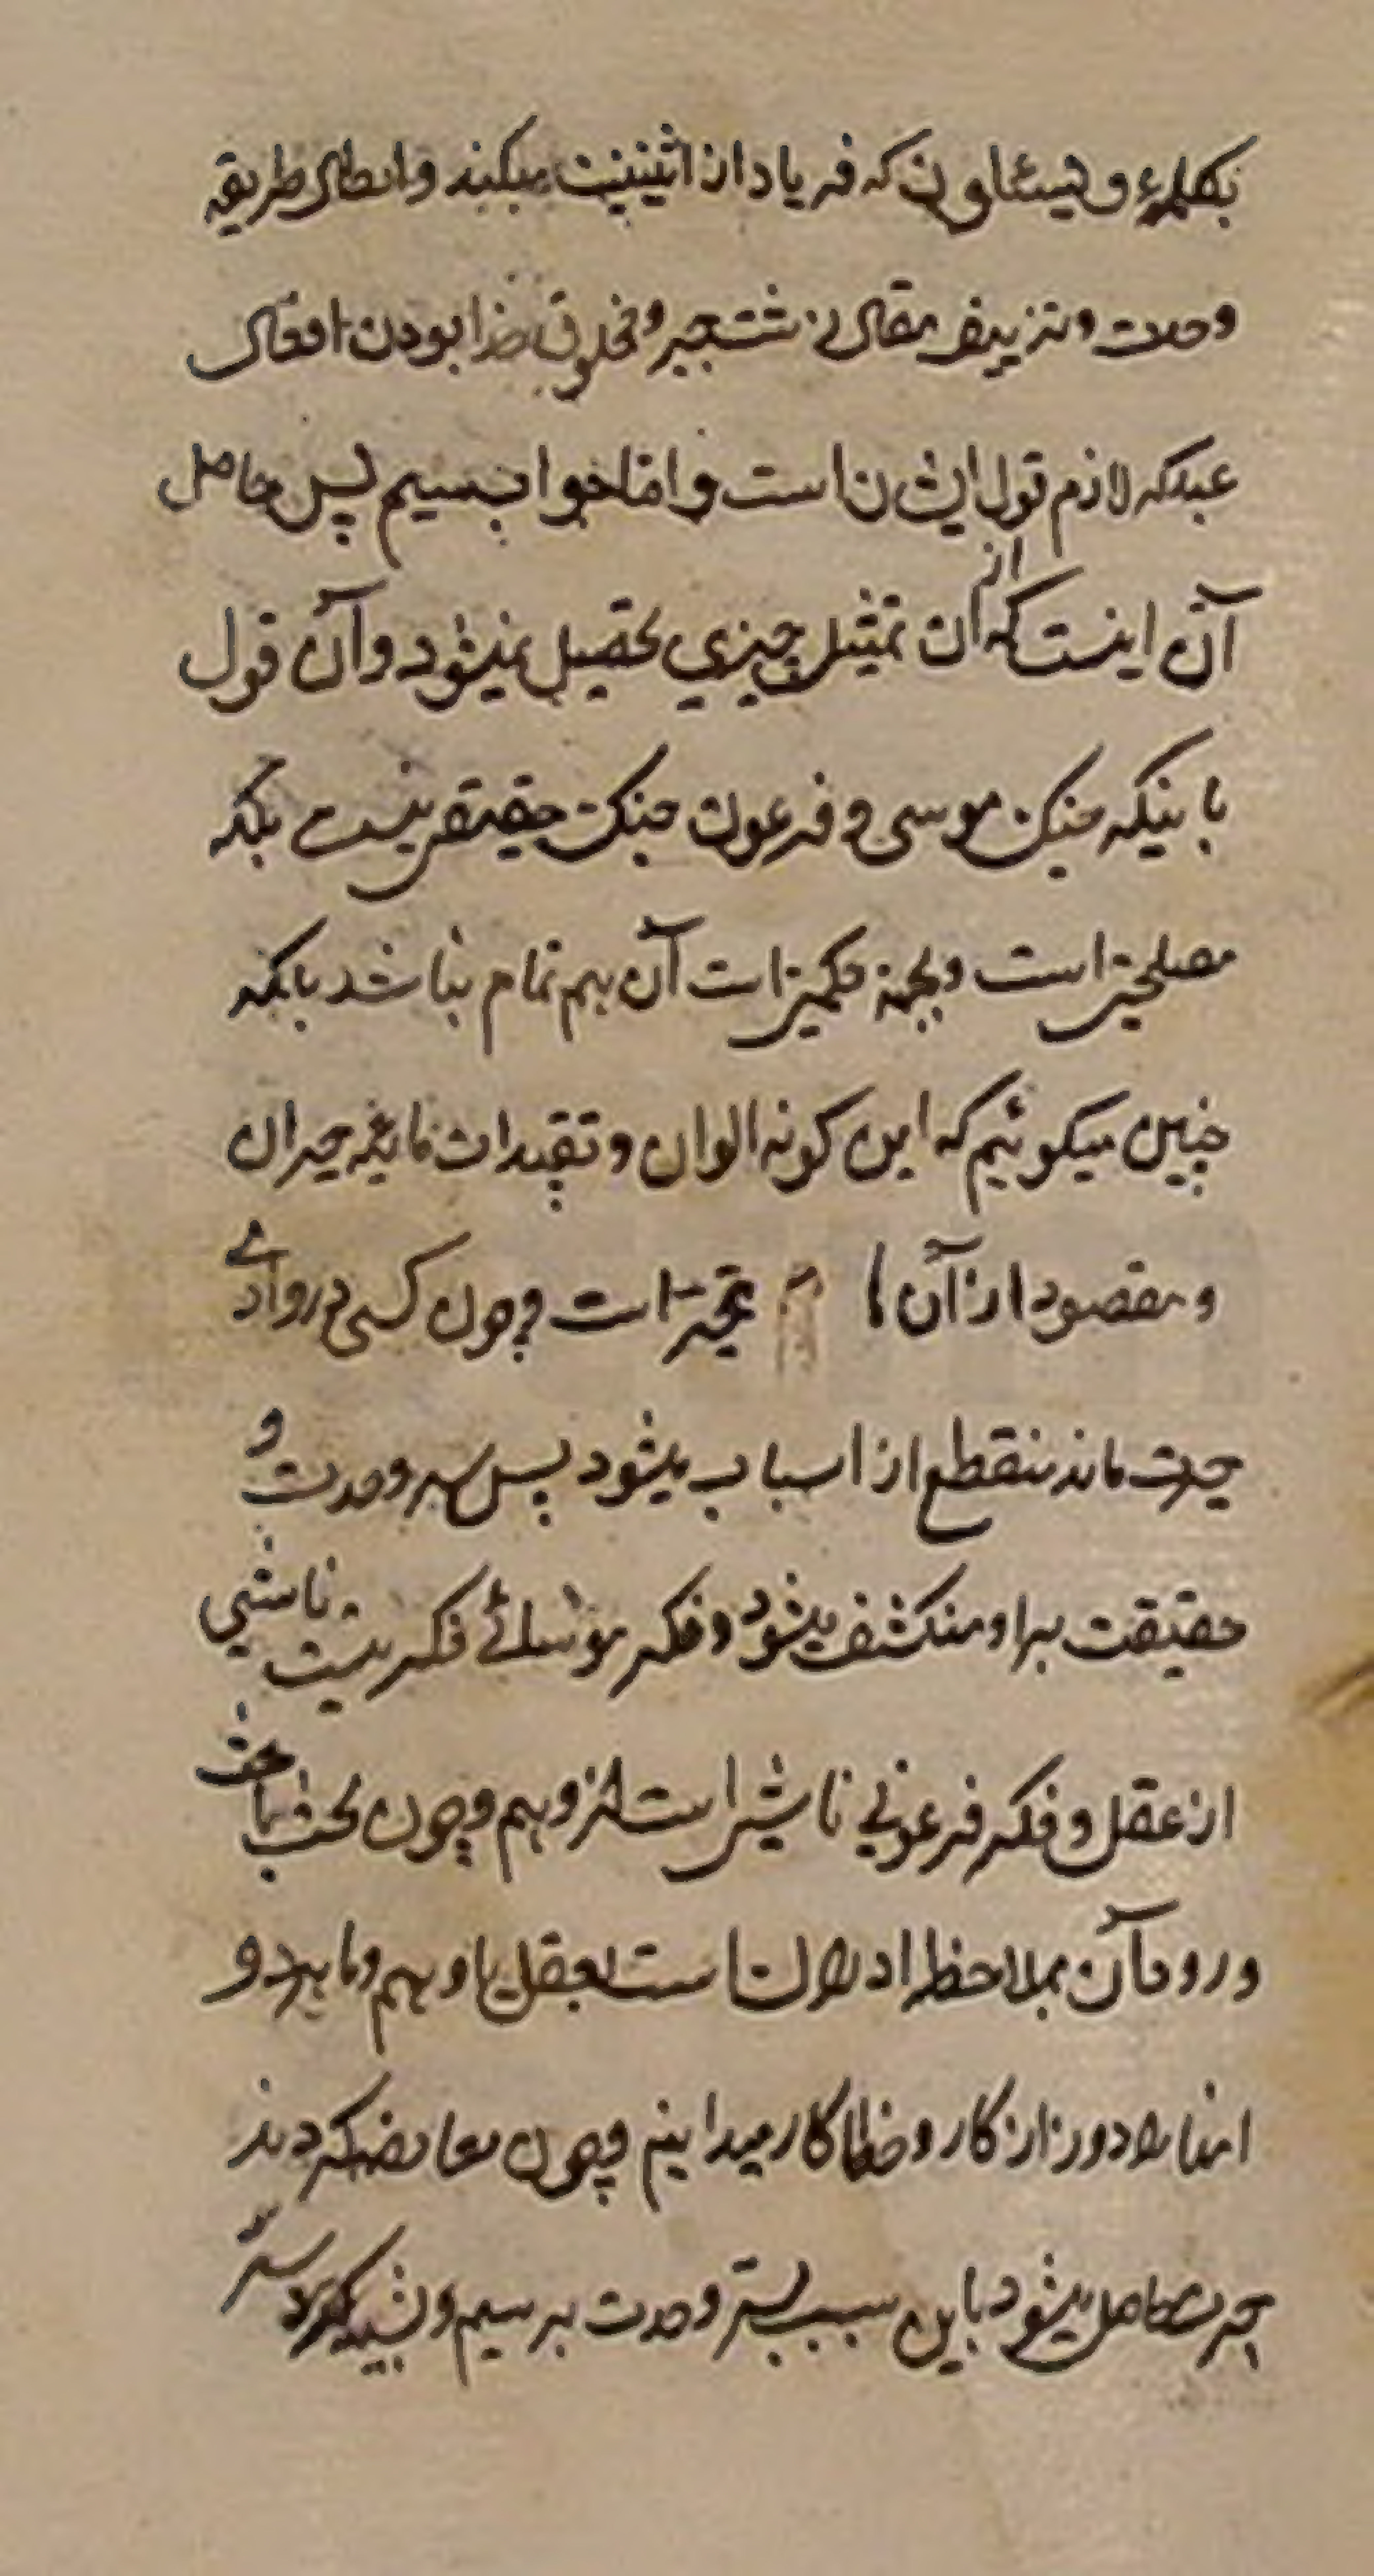 که فریاد از اثنینیت میکند و ابطال طریقه
وحدت و تزییف مقال و مخلوق خدا بودن افعال
عبد که لازم قول ایشان است و اما جواب سیم پس حاصل
آن اینست که از آن تمثیل چیزی تحصیل نمیشود و آن قول
باینکه جنک موسی و فرعون جنک حقیقی نیست بلکه
مصلحتی است و بجهة حکمتی است آن هم تمام نباشد بلکه
چنین میکوئیم که این کونه الوان و تقیدات مایه حیران
و مقصود از آن تحیر است و چون کسی در وادی
حیرت ماند منقطع از اسباب میشود پس سر وحدت و
حقیقت بر او منکشف میشود و فکر موسائی فکریست ناشی
از عقل و فکر فرعونی ناشی است از وهم و چون بحث با حق
در و مآن بملاحظه است بعقل یا وهم و ما هر دو
را دور از کار و خطا کار میدانیم و چون معارضه کردند
حیرت حاصل میشود باین سبب بسر وحدت برسیم و